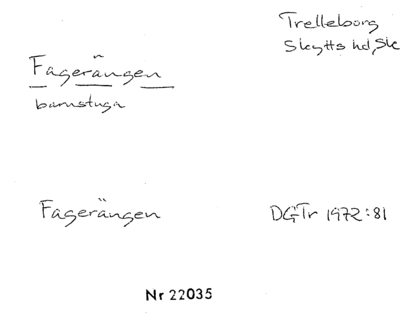 Trelleborg
Skytts hd, Sk
Fagerängen
barnstuga
Fagerängen DGTr 1972:81
Nr 22035